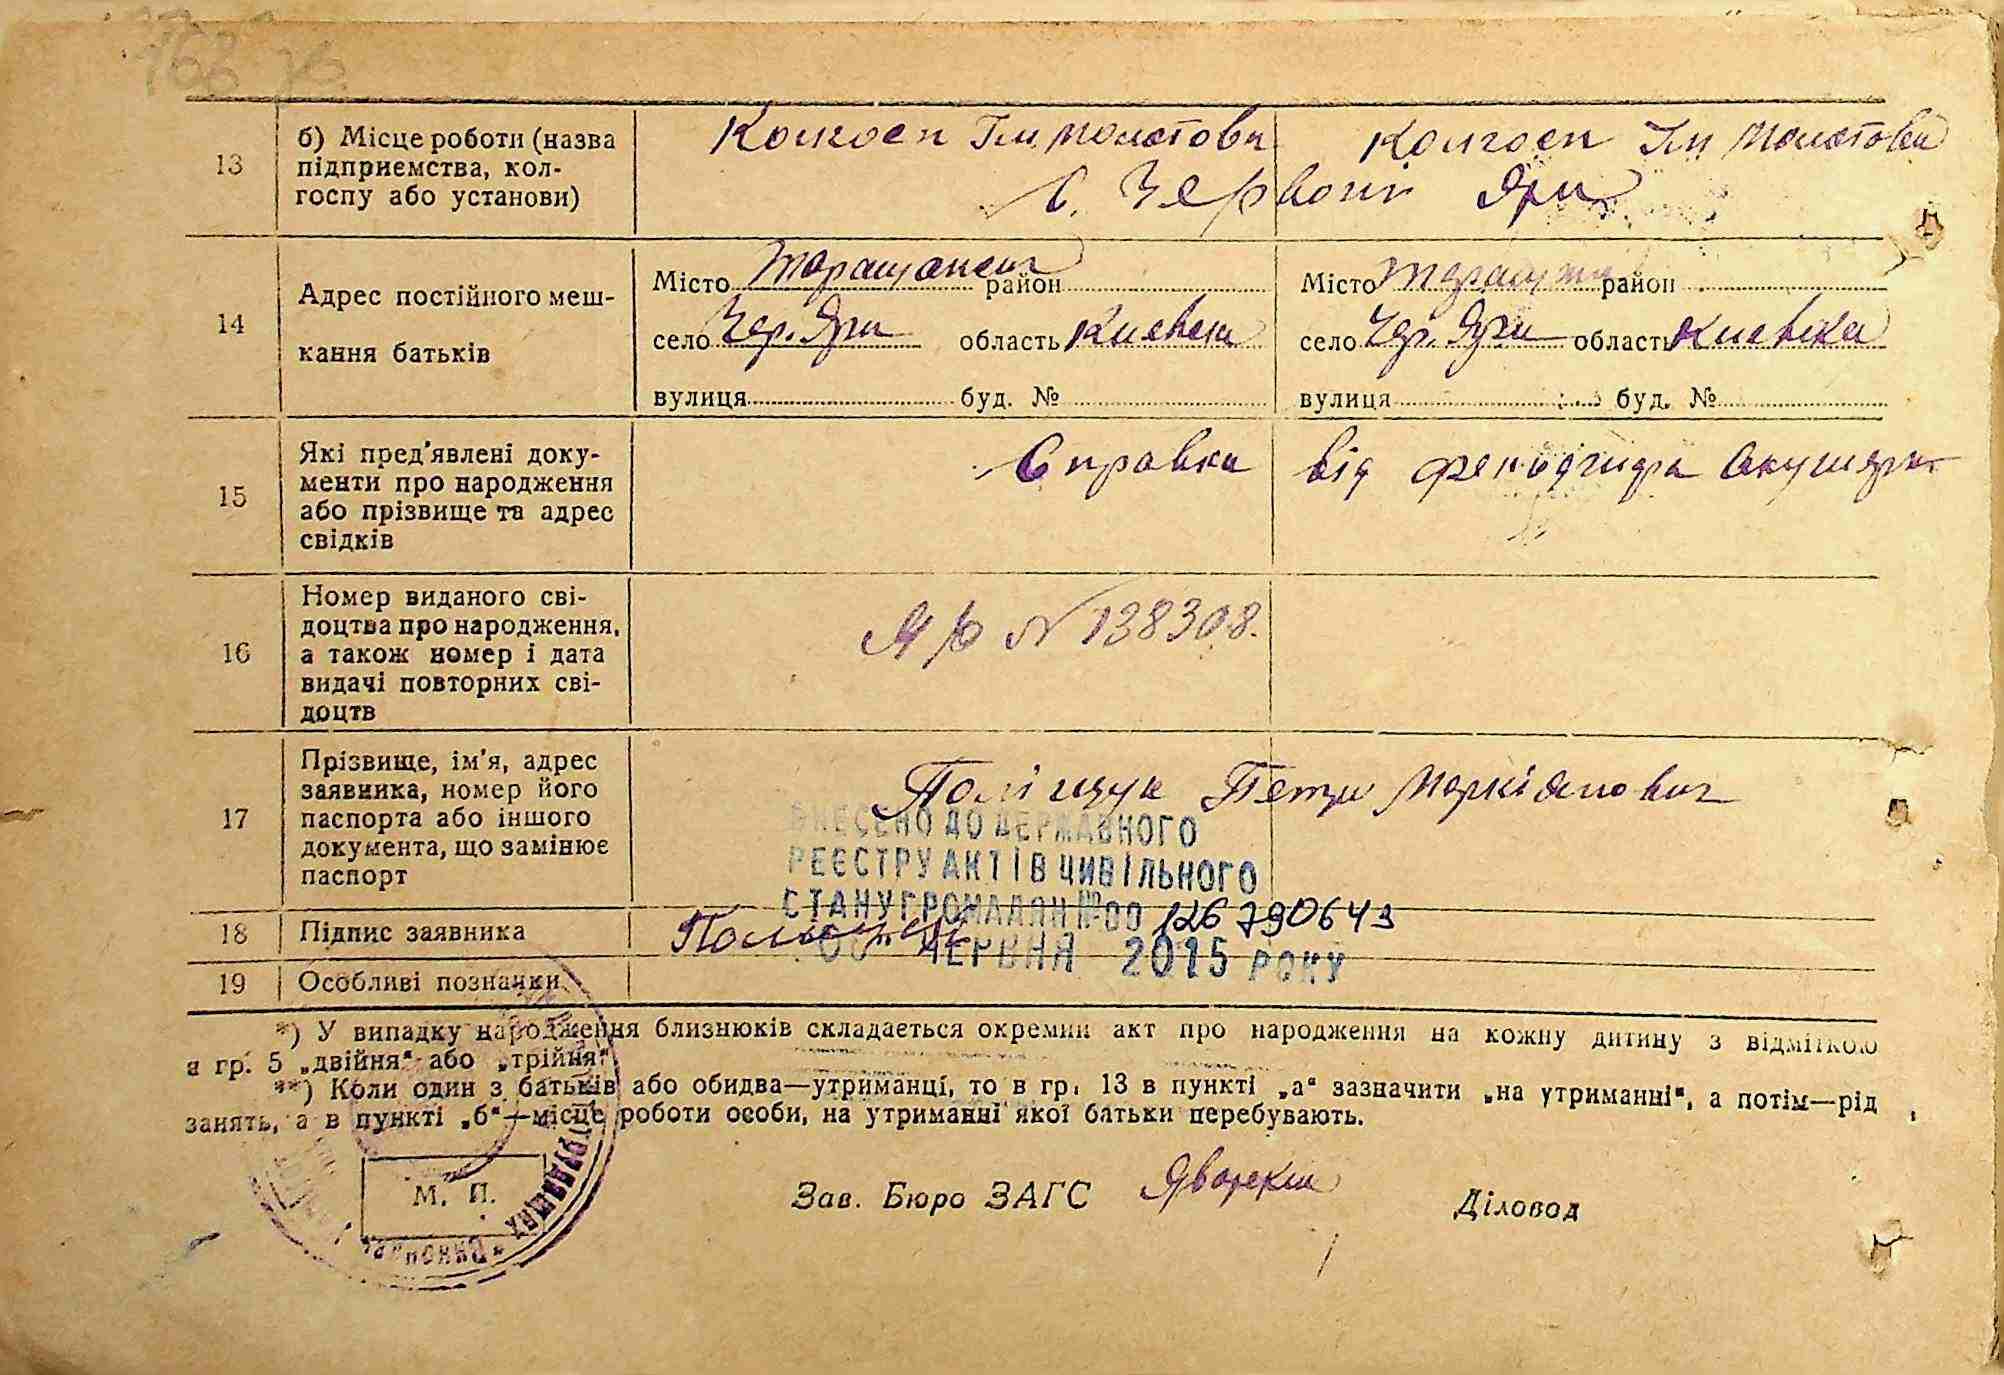 168
13
б) Місце роботи (назва
підприємства, кол-
госпу або установи)
Колгосп Ім. Молотова
Колгосп Ім Молотова
с. Червоні Яри
14
Адрес постійного меш-
кання батьків
Місто Таращанськ район
село Чер. Яри область Києвска
вулиця буд. №
Місто район
село Чер. Яри область Києвска
вулиця буд. №
15
Які пред'явлені доку-
менти про народження
або прізвище та адрес
свідків
Справка від акушера
16
Номер виданого сві-
доцтва про народження,
а також номер і дата
видачі повторних сві-
доцтв
№ 138308.
17
Прізвище, ім'я, адрес
заявника, номер його
паспорта або іншого
документа, що замінює
паспорт
Поліщук Петро Маркіянович
ВНЕСЕНО ДО ДЕРЖАВНОГО
РЕЄСТРУ АКТІВ ЦИВІЛЬНОГО
СТАНУ ГРОМАДЯН №00 126790643
ЧЕРВНЯ 2015 РОКУ
18
Підпис заявника
Поліщук
19
Особливі позначки
*) У випадку народження близнюків складається окремий акт про народження на кожну дитину з відміткою
в гр. 5 „двійня“ або „трійня“
**) Коли один з батьків або обидва—утриманці, то в гр. 13 в пункті „а“ зазначити „на утриманні“, а потім—рід
занять, а в пункті „б“—місце роботи особи, на утриманні якої батьки перебувають.
М. П.
Зав. Бюро ЗАГС
Діловод